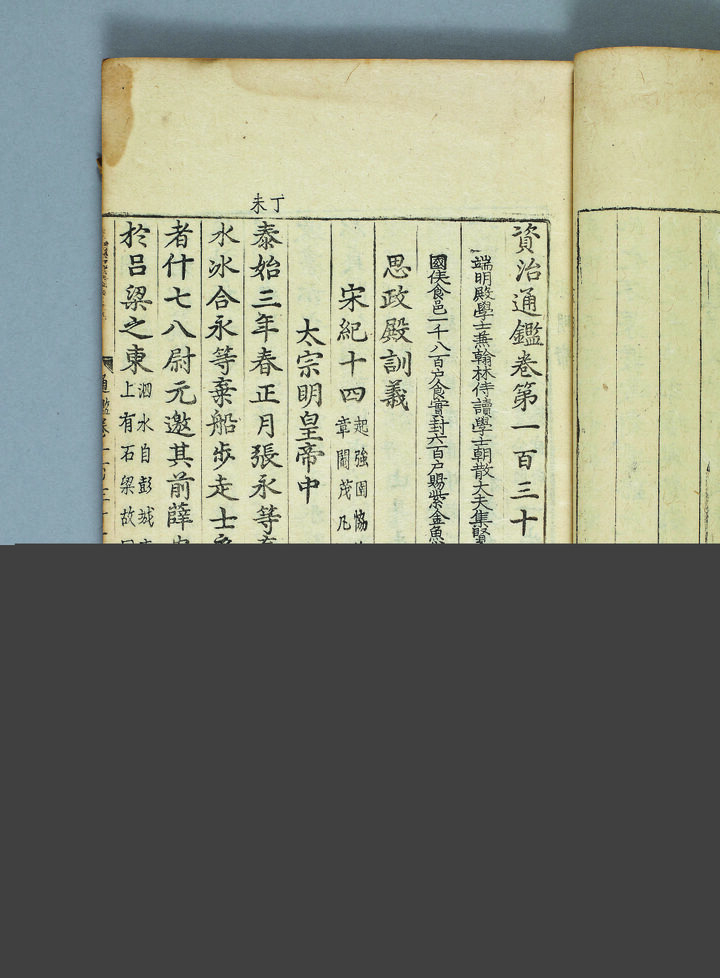 資治通鑑卷第一百三十
端明殿學士兼翰林侍讀學士朝散大夫集賢
國侯食邑一千八百户食實封六百户賜紫金魚
思政殿訓義
宋紀十四 起強圉恊
章閹茂凡
太宗明皇帝中
丁未
泰始三年春正月張永等
水冰合永等棄船步走士
者什七八尉元邀其前薛
於呂梁之東 泗水自彭城
上有石梁故
通鑑卷一百三十